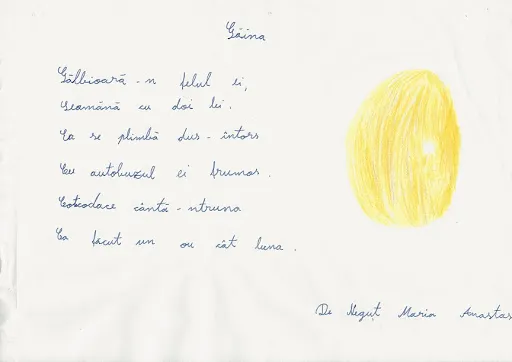 Găina
Gălbioară-n felul ei,
Seamănă cu doi lei.
Ea se plimbă dus-întors
Cu autobuzul ei frumos.
Cotcodace cântă-ntruna
Ca făcut un ou cât luna.
De Neguț Maria Anastas